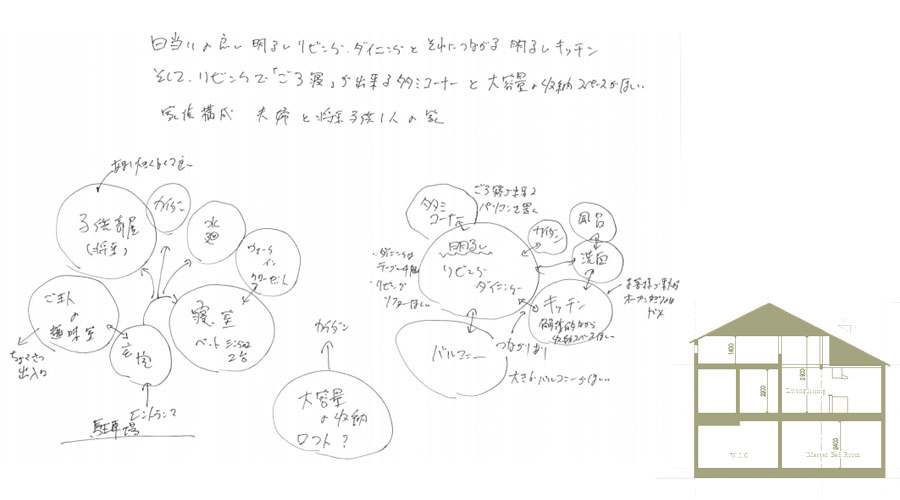 日当りの良い 明るいリビング・ダイニングと それにつながる 明るいキッチン
そして、リビングで「ごろ寝」が出来るタタミコーナーと 大容量の収納スペースがほしい
家族構成 夫婦と将来子供1人の家
子供部屋
(将来)
カイダン
水廻
ウォーク
イン
クローゼット
ご主人
の
趣味室
ちょくせつ
出入り
玄関
寝室
ベッド シングル
2台
エントランス
駐車場
カイダン
大容量
の収納
ロフト?
タタミ
コーナー
ごろ寝が出来る
パソコンも置く
カイダン
風呂
洗面
明るい
リビング
ダイニング
・ダイニングは
テーブル4脚
・リビング
ソファーほしい
キッチン
収納スペースほしい
お客様が来るので
オープンキッチンは
ダメ
つながり
バルコニー
大きなバルコニーがほしい
1400
2200
2800
Living Dining
2400
W.I.C
Master Bed Room